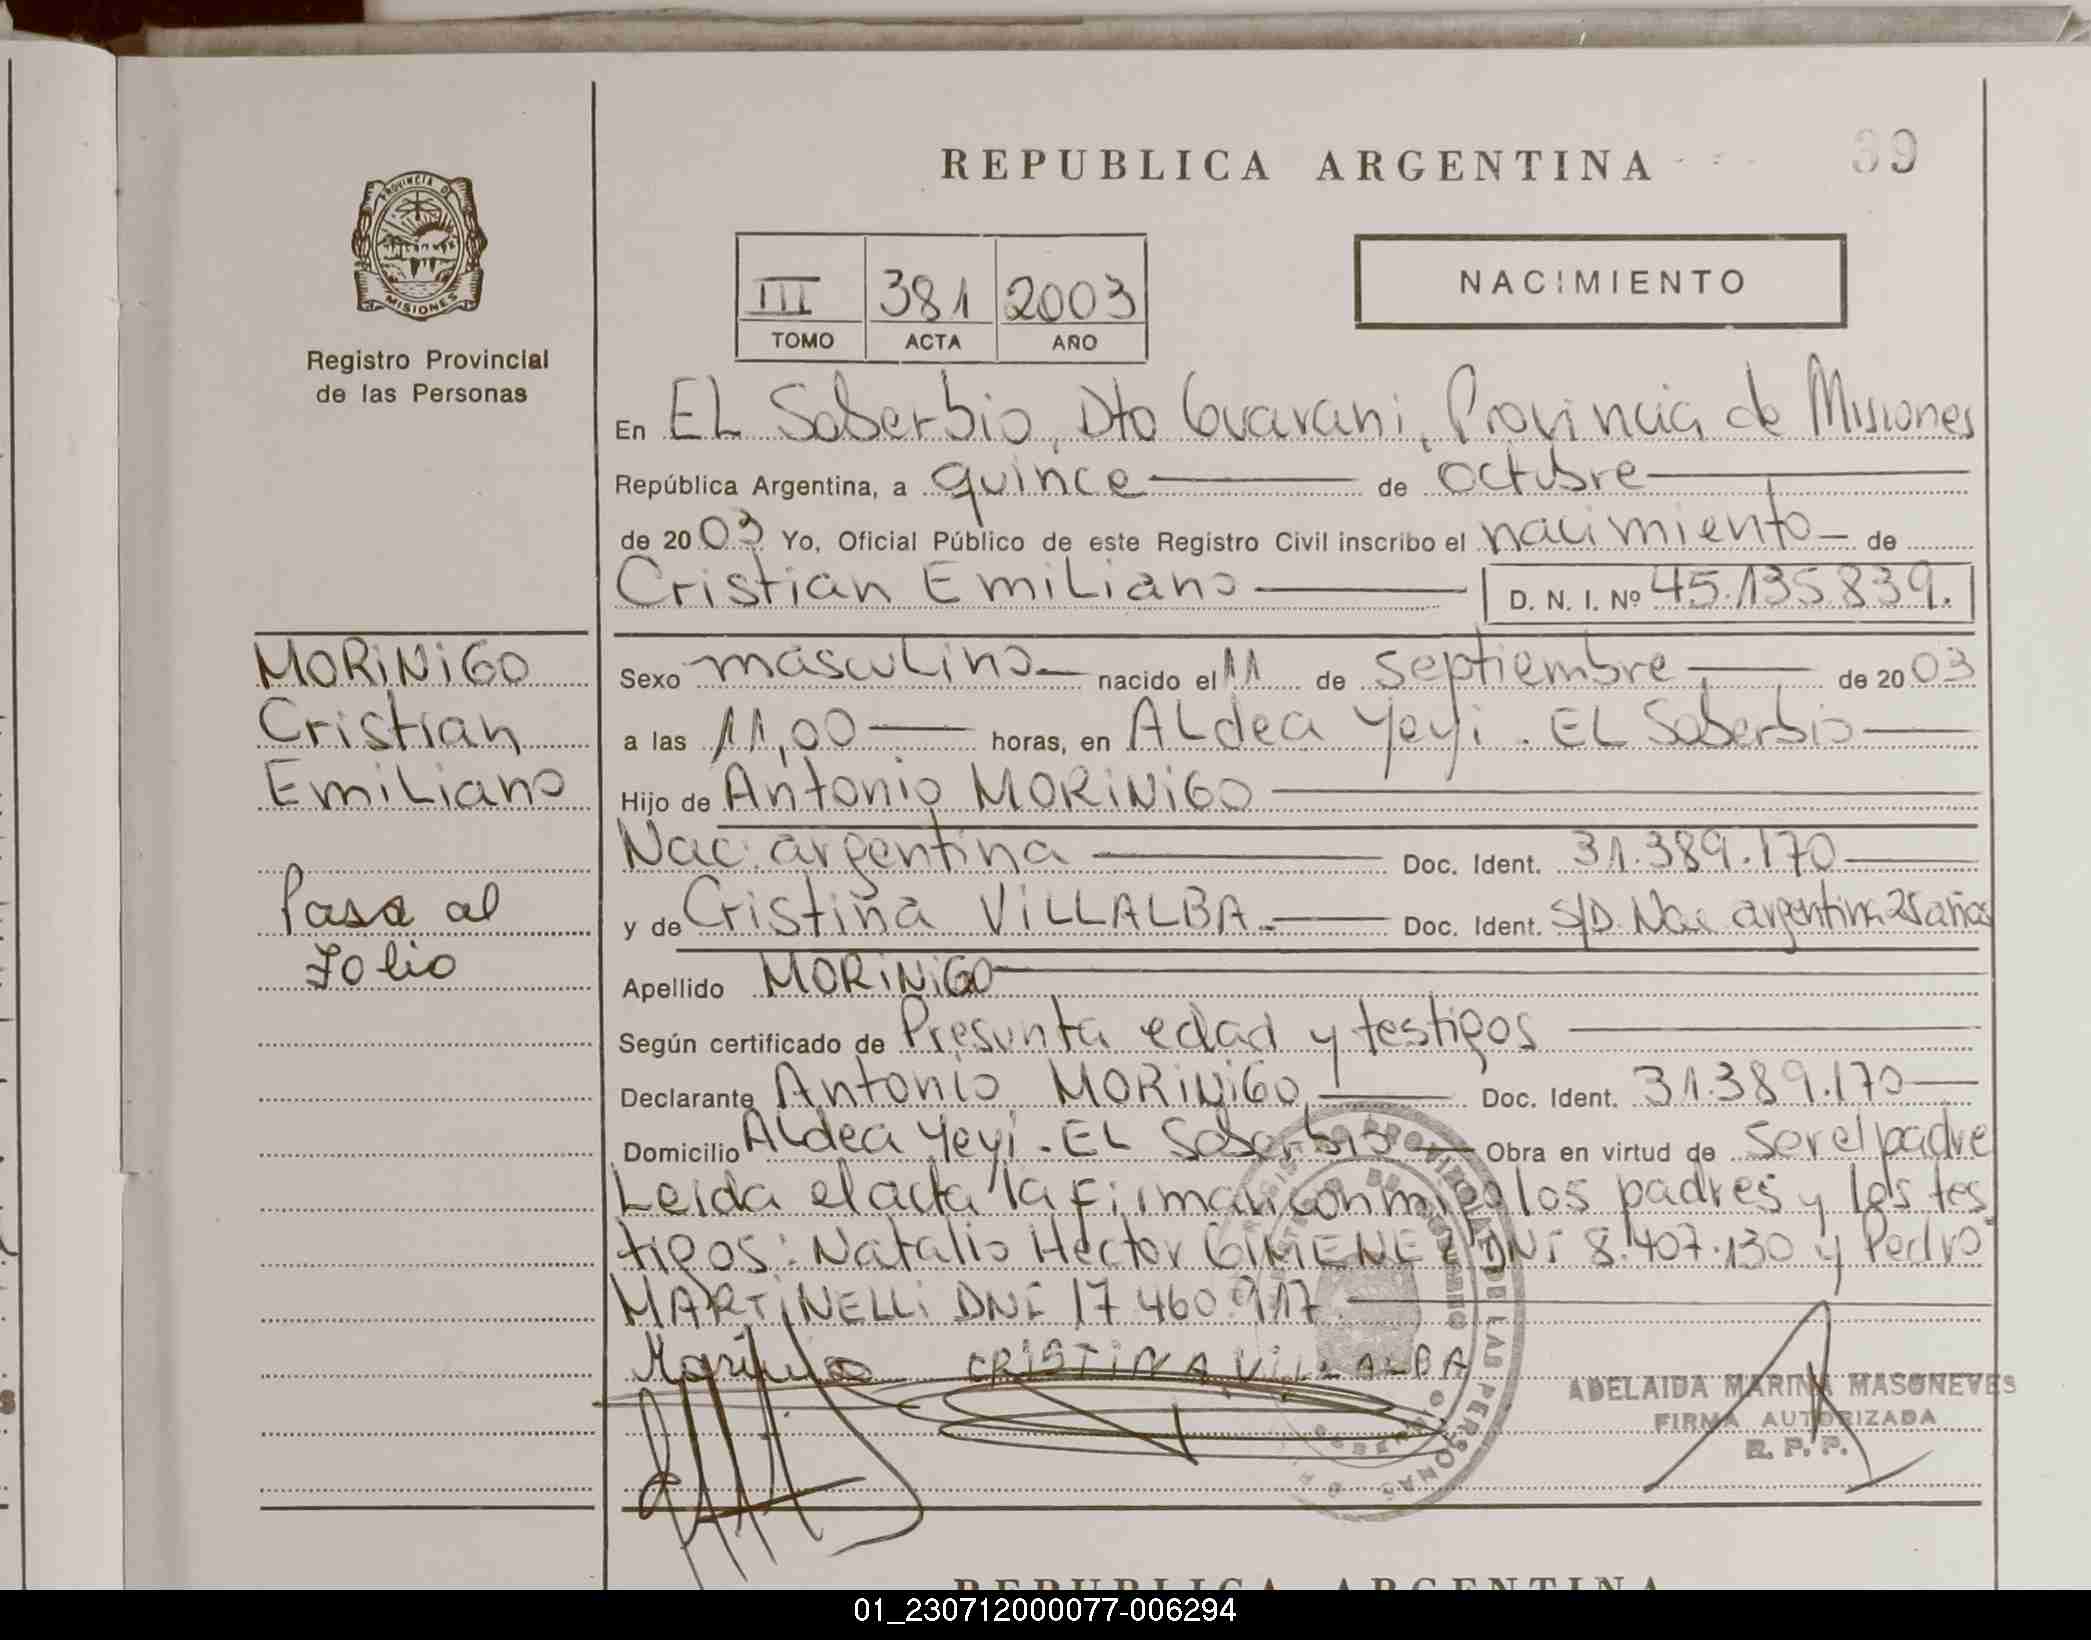 REPUBLICA ARGENTINA
39
PROVINCIA DE
MISIONES
Registro Provincial
de las Personas
III 381 2003
TOMO ACTA AÑO
NACIMIENTO
En EL Soberbio, Dto Guarani, Provincia de Misiones
República Argentina, a quince de octubre
de 2003 Yo, Oficial Público de este Registro Civil inscribo el nacimiento de
Cristian Emiliano D. N. I. Nº 45.135.839.
MORiNiGO
Cristian
Emiliano
Pasa al
Folio
Sexo masculino nacido el 11 de septiembre de 2003
a las 11,00 horas, en ALdea Yeyi. EL Soberbio
Hijo de Antonio MORiNiGO
Nac. argentina Doc. Ident. 31.389.170
y de Cristina ViLLALBA. Doc. Ident. S/D. Nac argentina 25 años
Apellido MORiNiGO
Según certificado de Presunta edad y testigos
Declarante Antonio MORiNiGO Doc. Ident. 31.389.170
Domicilio ALdea Yeyi. EL Soberbio Obra en virtud de ser el padre
Leida el acta la firman conmigo los padres y los tes
tigos: Natalio Hector GiMENEZ DNI 8.407.130 y Pedro
MARTiNELLi DNI 17.460.917.
CRISTINA VILLALBA
ADELAIDA MARINA MASONEVES
FIRMA AUTORIZADA
R. P. P.
REPUBLICA ARGENTINA
01_230712000077-006294